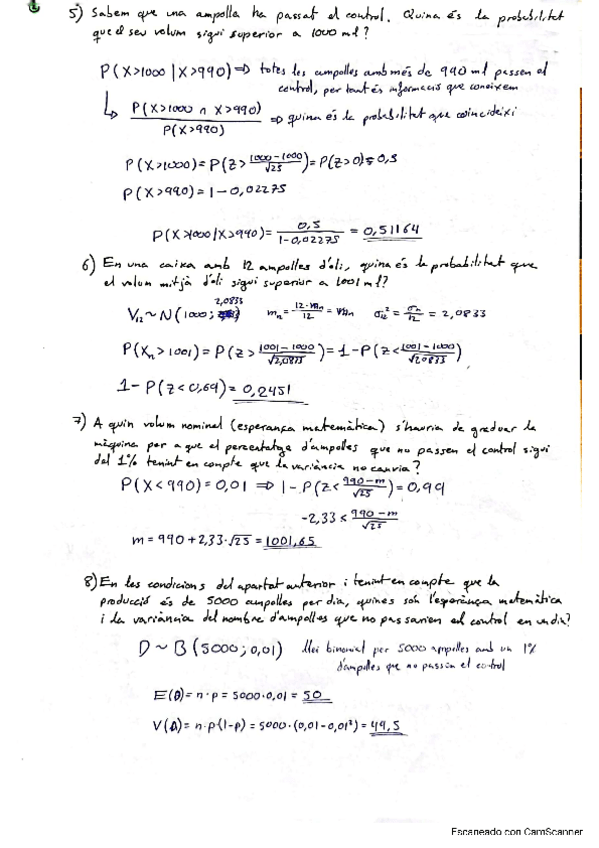 5) Sabem que una ampolla ha passat el control. Quina és la probabilitat
que el seu volum sigui superior a 1000 ml?
P(X>1000 | X>990) ⇒ totes les ampolles amb més de 990 ml passen el
control, per tant és informació que coneixem
↳ P(X>1000 ∩ X>990) / P(X>990) ⇒ quina és la probabilitat que coincideixi
P(X>1000) = P(Z > (1000-1000)/√25) = P(Z>0) = 0,5
P(X>990) = 1 - 0,02275
P(X>1000|X>990) = 0,5 / (1-0,02275) = 0,51164
6) En una caixa amb 12 ampolles d'oli, quina és la probabilitat que
el volum mitjà d'oli sigui superior a 1001 ml?
V₁₂ ~ N(1000; 2,0833) mₙ = 12·mₙ / 12 = mₙ σ₁₂² = σₙ / 12 = 2,0833
P(Xₙ > 1001) = P(Z > (1001-1000)/√2,0833) = 1 - P(Z < (1001-1000)/√2,0833)
1 - P(Z < 0,69) = 0,2451
7) A quin volum nominal (esperança matemàtica) s'hauria de graduar la
màquina per a que el percentatge d'ampolles que no passen el control sigui
del 1% tenint en compte que la variància no canvia?
P(X < 990) = 0,01 ⇒ 1 - P(Z < (990-m)/√25) = 0,99
-2,33 < (990-m)/√25
m = 990 + 2,33·√25 = 1001,65
8) En les condicions del apartat anterior i tenint en compte que la
producció és de 5000 ampolles per dia, quines són l'esperança matemàtica
i la variància del nombre d'ampolles que no passarien el control en un dia?
D ~ B(5000; 0,01) llei binomial per 5000 ampolles amb un 1%
d'ampolles que no passin el control
E(D) = n·p = 5000·0,01 = 50
V(D) = n·p·(1-p) = 5000·(0,01-0,01²) = 49,5
Escaneado con CamScanner